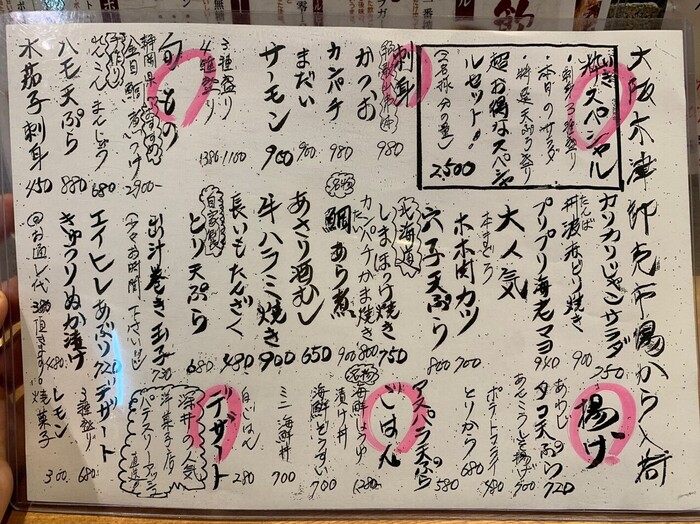 大阪木津卸売市場から入荷
粋スペシャル
いき
・刺身3種盛り
・本日のサラダ
・特選天ぷら盛り
超お得なスペシャ
ルセット!!
(2名様分の量)
2,500
刺身
かつお 980
カンパチ 980
まだい 900
サーモン 900
3種盛り 1100
4種盛り 1380
旬もの
静岡県
金目鯛煮つけ 2900-
手作り
れんこんまんじゅう 680
ハモ天ぷら 880
水茄子刺身 450
カリカリじゃこサラダ 750
たんば
丹波赤どり焼き 900
プリプリ海老マヨ 940
大人気
本まぐろ
ホホ肉カツ 700
穴子天ぷら 800
北海道
しまほっけ焼き 750
カンパチかま焼き 800
名物
たい
鯛あら煮 900
あさり酒むし 650
牛ハラミ焼き 900
長いもたんざく 480
自家製
とり天ぷら 680
出汁巻き玉子 720
(少々お時間下さい。)
エイヒレあぶり 720
きゅうりぬか漬け 480
@お通し代380頂きます。
揚げ
あわじ
タコ天ぷら 720
あんこうから揚げ 900
ポテトフライ 480
とりから 680
アスパラ天ぷら 580
ごはん
名物
海鮮しょうゆ
漬け丼 1280-
海鮮ぞうすい 700
ミニ海鮮丼 700
白ごはん 280
デザート
深井の人気
洋菓子店
パティスリーアッシュ
直送
デザート
3種盛り 680
レモン
焼菓子 300